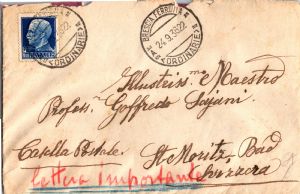 BRESCIA FERROVIA
24.9.35.22
(ORDINARIE)
(ORDINARIE)
Illustrissimo Maestro
Profess. Goffredo Sajani
Casella Postale. St Moritz Bad
Svizzera
lettera importante